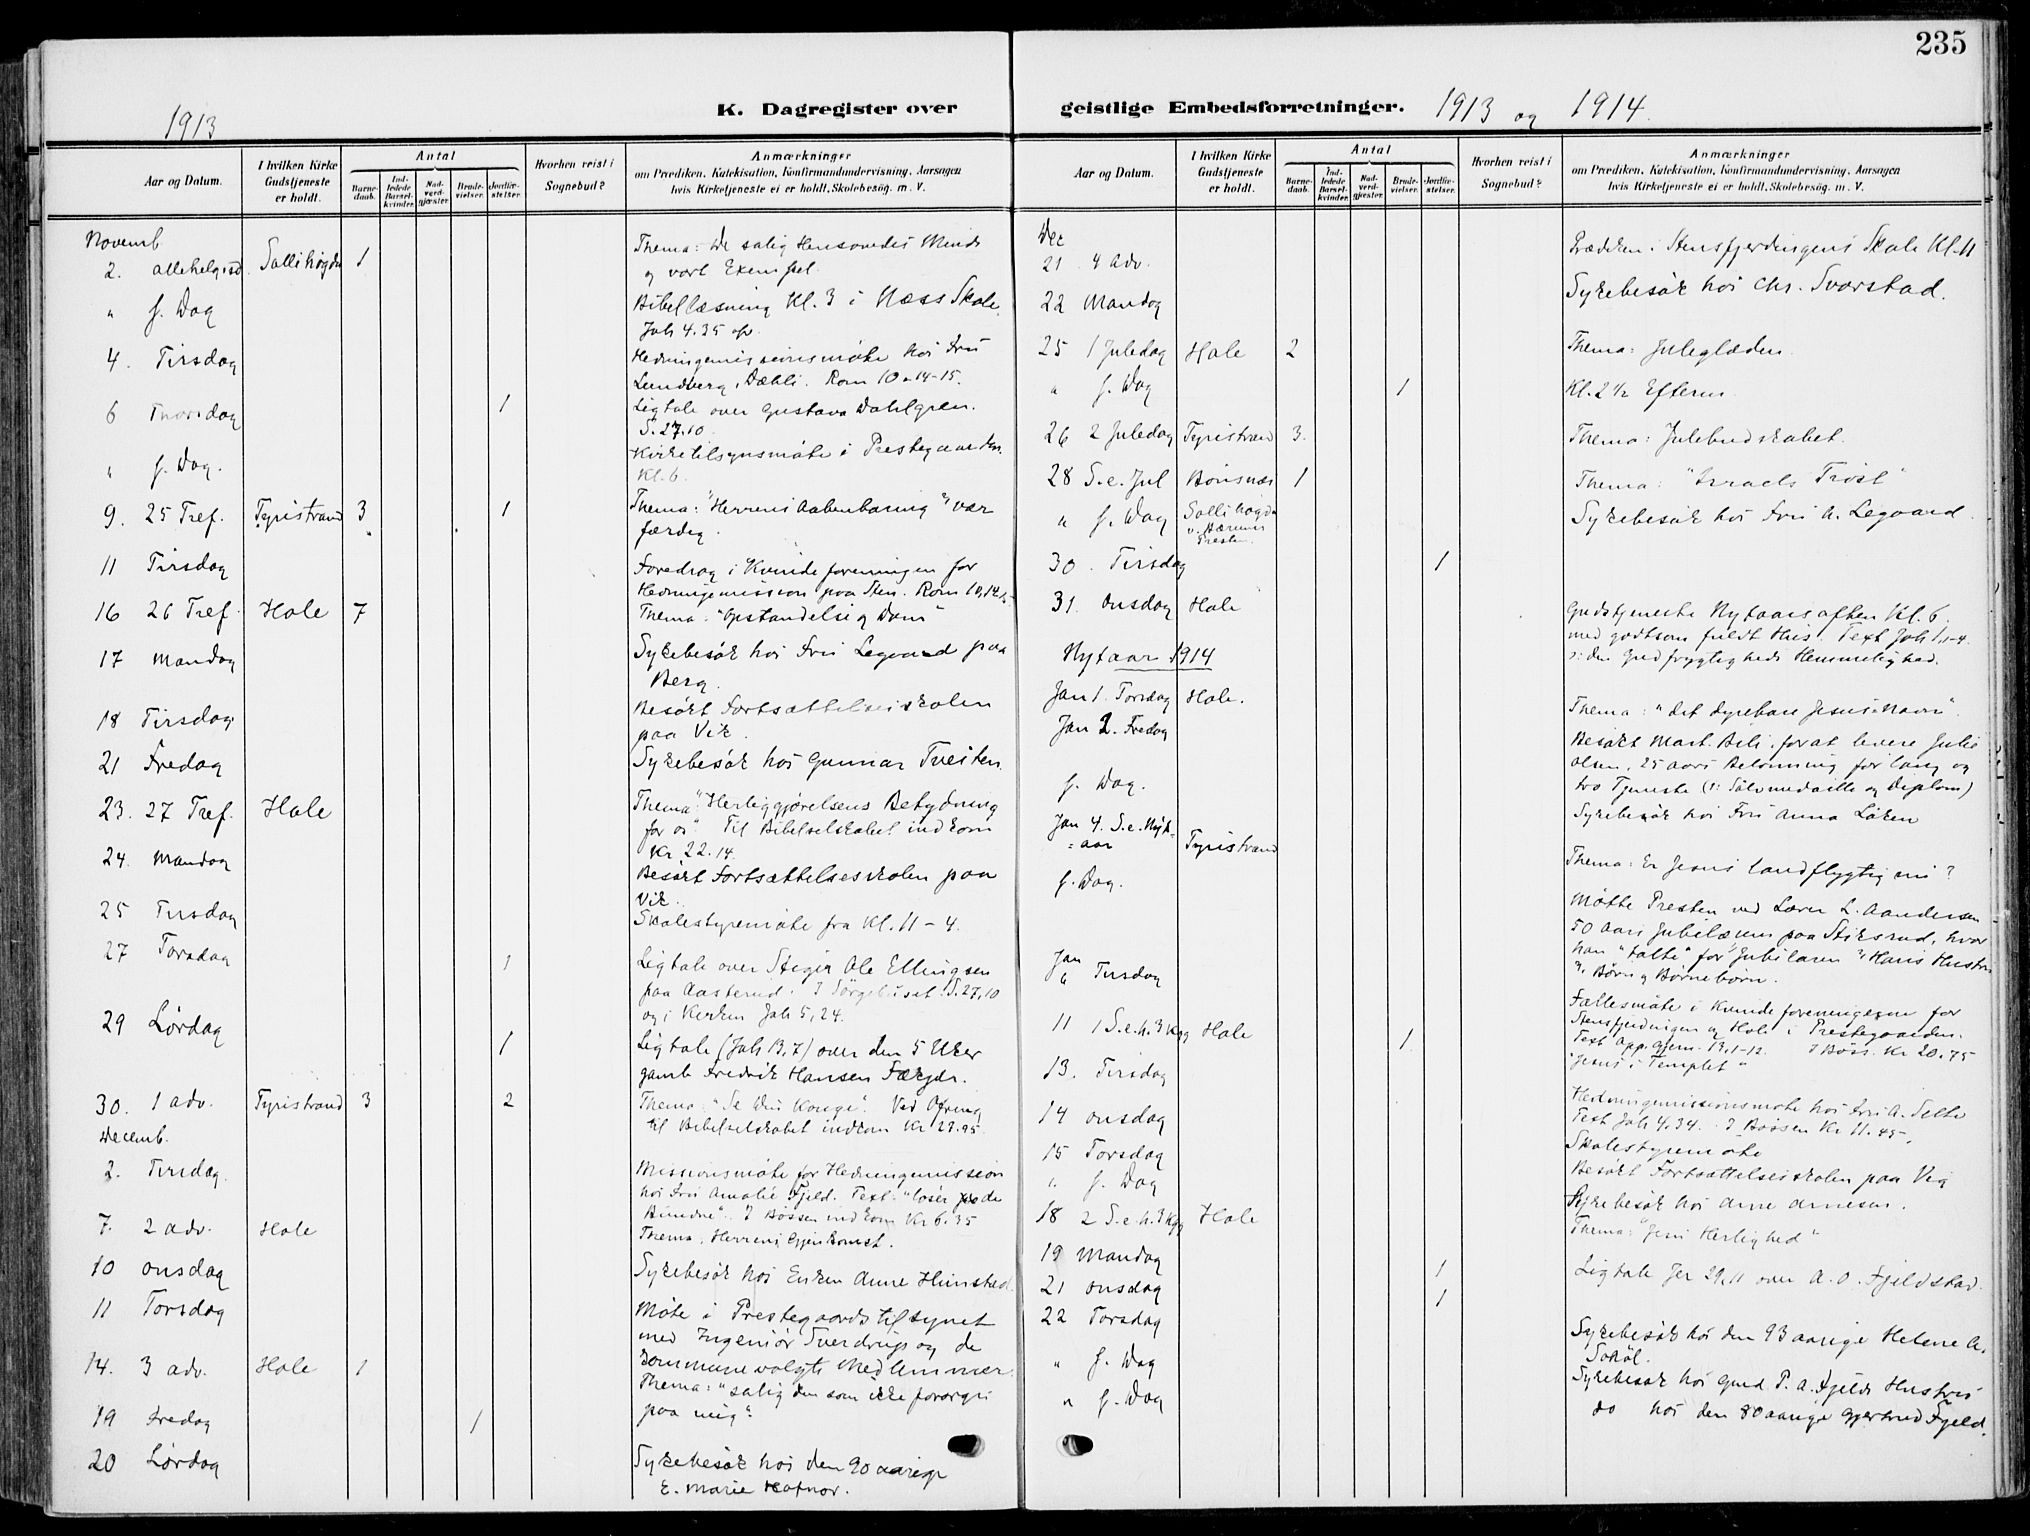 235
1913
K. Dagregister over
geistlige Embedsforretninger. 1913 og 1914.
Aar og Datum.
I hvilken Kirke Gudstjeneste er holdt.
Antal
Barnedaab.
Indledede Barselkvinder.
Nadverdgjæster.
Brudevielser.
Jordfæstelser.
Hvorhen reist i Sognebud?
Anmærkninger
om Prædiken, Katekisation, Konfirmandundervisning, Aarsagen
hvis Kirketjeneste ei er holdt, Skolebesøg, m. V.
Novemb
2. allehelgsd. Sollihøgda 1 Thema: De salig Hensovedes Minde
og vort Exempel.
" s. Dag Bibellæsning Kl. 3 i Næss Skole.
Joh 4.35 
4. Tirsdag Hedningemissionsmøte hos Fru
Lundberg, Dæhli. Rom 10 14-15.
6 Thorsdag 1 Ligtale over Gustava Dahlgren.
S. 27.10
" s. Dag. Kirketilsynsmøte i Prestegaarden
Kl. 6.
9. 25 Tref. Tyristrand 3 1 Thema: "Herrens Aabenbaring" vær
færdig.
11 Tirsdag Foredrag i Kvindeforeningen for
Hedningemission paa Sten. Rom 10,14
16 26 Tref. Hole 7 Thema: "Opstandelse og Dom"
17 Mandag Sykebesøk hos Fru Legaard paa
Berg.
18 Tirsdag Besøkt Fortsættelsesskolen
paa Vik.
21 Fredag Sykebesøk hos Gunnar Tveiten.
23. 27 Tref. Hole Thema: "Herliggjørelsens Betydning
for os". Til Bibelselskabet indkom
Kr 22.14.
24. Mandag Besøkt Fortsættelsesskolen paa
Vik.
25 Tirsdag Skolestyremøte fra Kl. 11-4.
27 Torsdag 1 Ligtale over Ole Ellingsen
paa Aasterud. I Sørgehuset S. 27,10
og i Kirken Joh 5,24.
29 Lørdag 1 Ligtale (Joh 13,7) over den 5 Uker
gamle Fredrik Hansen
30. 1 adv. Tyristrand 3 2 Thema: "Se Din Konge". Ved Ofring
til Bibelselskabet indkom Kr 23.95.
Decemb.
2. Tirsdag. Missionsmøte for Hedningemission
hos Fru Amalie Fjeld. Text: "løser de
Bundne". I Bøssen indkom Kr 6.35
7. 2 adv. Hole Thema: Herrens Gjenkomst.
10 Onsdag Sykebesøk hos Enken Anne Hunstad.
11 Torsdag Møte i Prestegaardstilsynet
med Ingeniør Sverdrup og de
kommunevalgte Medlemmer.
14. 3 adv. Hole 1 Thema: "salig den som ikke forarges
paa mig".
19 Fredag 1
20 Lørdag Sykebesøk hos den 90 aarige
E. Marie Hafnor.
Aar og Datum.
I hvilken Kirke Gudstjeneste er holdt.
Antal
Barnedaab.
Indledede Barselkvinder.
Nadverdgjæster.
Brudevielser.
Jordfæstelser.
Hvorhen reist i Sognebud?
Anmærkninger
om Prædiken, Katekisation, Konfirmandundervisning, Aarsagen
hvis Kirketjeneste ei er holdt, Skolebesøg, m. V.
Dec
21 4 Adv. Prædiken i Stensfjerdingens Skole Kl. 11
22 Mandag Sykebesøk hos Chr. Svarstad.
25 1 Juledag Hole 2 Thema: Juleglæden.
" s. Dag 1 Kl. 2 1/2 Efterm.
26 2 Juledag Tyristrand 3. Thema: Julebudskabet.
28 S.e. Jul Bønsnæs 1 Thema: "Israels Trøst"
" s. Dag Sollihøgda
v. Bærums
Presten. Sykebesøk hos Fru A. Legaard.
30 Tirsdag 1
31. Onsdag Hole Gudstjeneste Nytaarsaften Kl. 6.
med godtsom fuldt Hus. Text Joh 1,1-4.
: den Gudfrygtigheds Hemmelighed.
Nytaar 1914
Jan 1. Torsdag Hole. Thema: "det dyrebare Jesus Navn".
Jan 2. Fredag Besøkt Mart. Beli, for at levere Julie
Olsen, 25 aars Belønning for lang og
tro Tjeneste (: Sølvmedaille og Diplom)
s. Dag. Sykebesøk hos Fru Anna Løken
Jan 4. S.e. Nyt-
=aar Tyristrand Thema: Er Jesus landflygtig nu?
s. Dag. Møtte Presten ved Lærer L. Aandersen
50 Aars Jubilæum paa Stiksrud, hvor
han "talte" for Jubilaren, Hans Hustru
Børn og Børnebørn.
Jan
6 Tirsdag Fællesmøte i Kvindeforeningerne for
Stensfjerdingen og Hole i Prestegaarden.
Text App. gjern. 13,1-12. I Bøss. Kr 20.75
11 1 S.e.h. 3 Kgg Hole 1 "Jesus i Templet"
13. Tirsdag Hedningemissionsmøte hos Fru A. Selte
Text Joh 4.34. I Bøssen Kr 11.45.
14 Onsdag Skolestyremøte
15 Torsdag Besøkt Fortsættelsesskolen paa Vig
" s. Dag Sykebesøk hos Anne Arnesen.
18 2 S.e.h. 3 Kgg Hole Thema: "Jesu Herlighed"
19 Mandag 1 Ligtale Jer 29.11 over A. O. Fjeldstad.
21 Onsdag 1
22 Torsdag Sykebesøk hos den 93 aarige Helene A.
Søhol.
" s. Dag Sykebesøk hos Gmd. P. A. Fjelds Hustru
" s. Dag do hos den 80 aarige Gjertrud Fjeld.